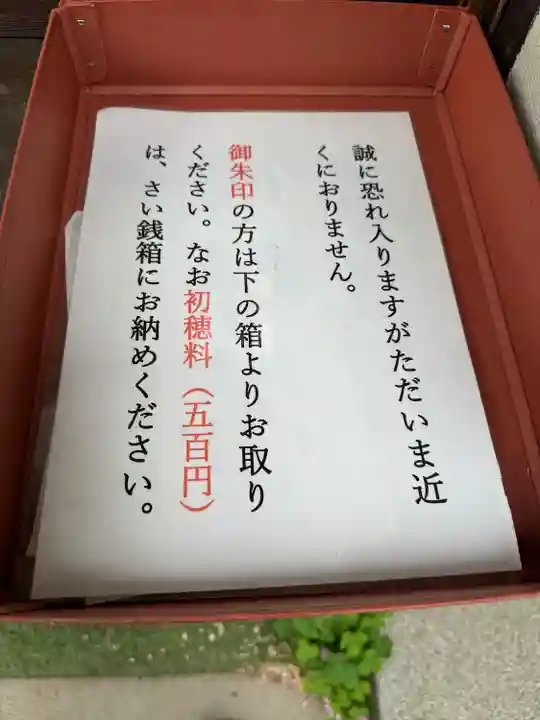 誠に恐れ入りますがただいま近
くにおりません。
御朱印の方は下の箱よりお取り
ください。なお初穂料（五百円）
は、さい銭箱にお納めください。